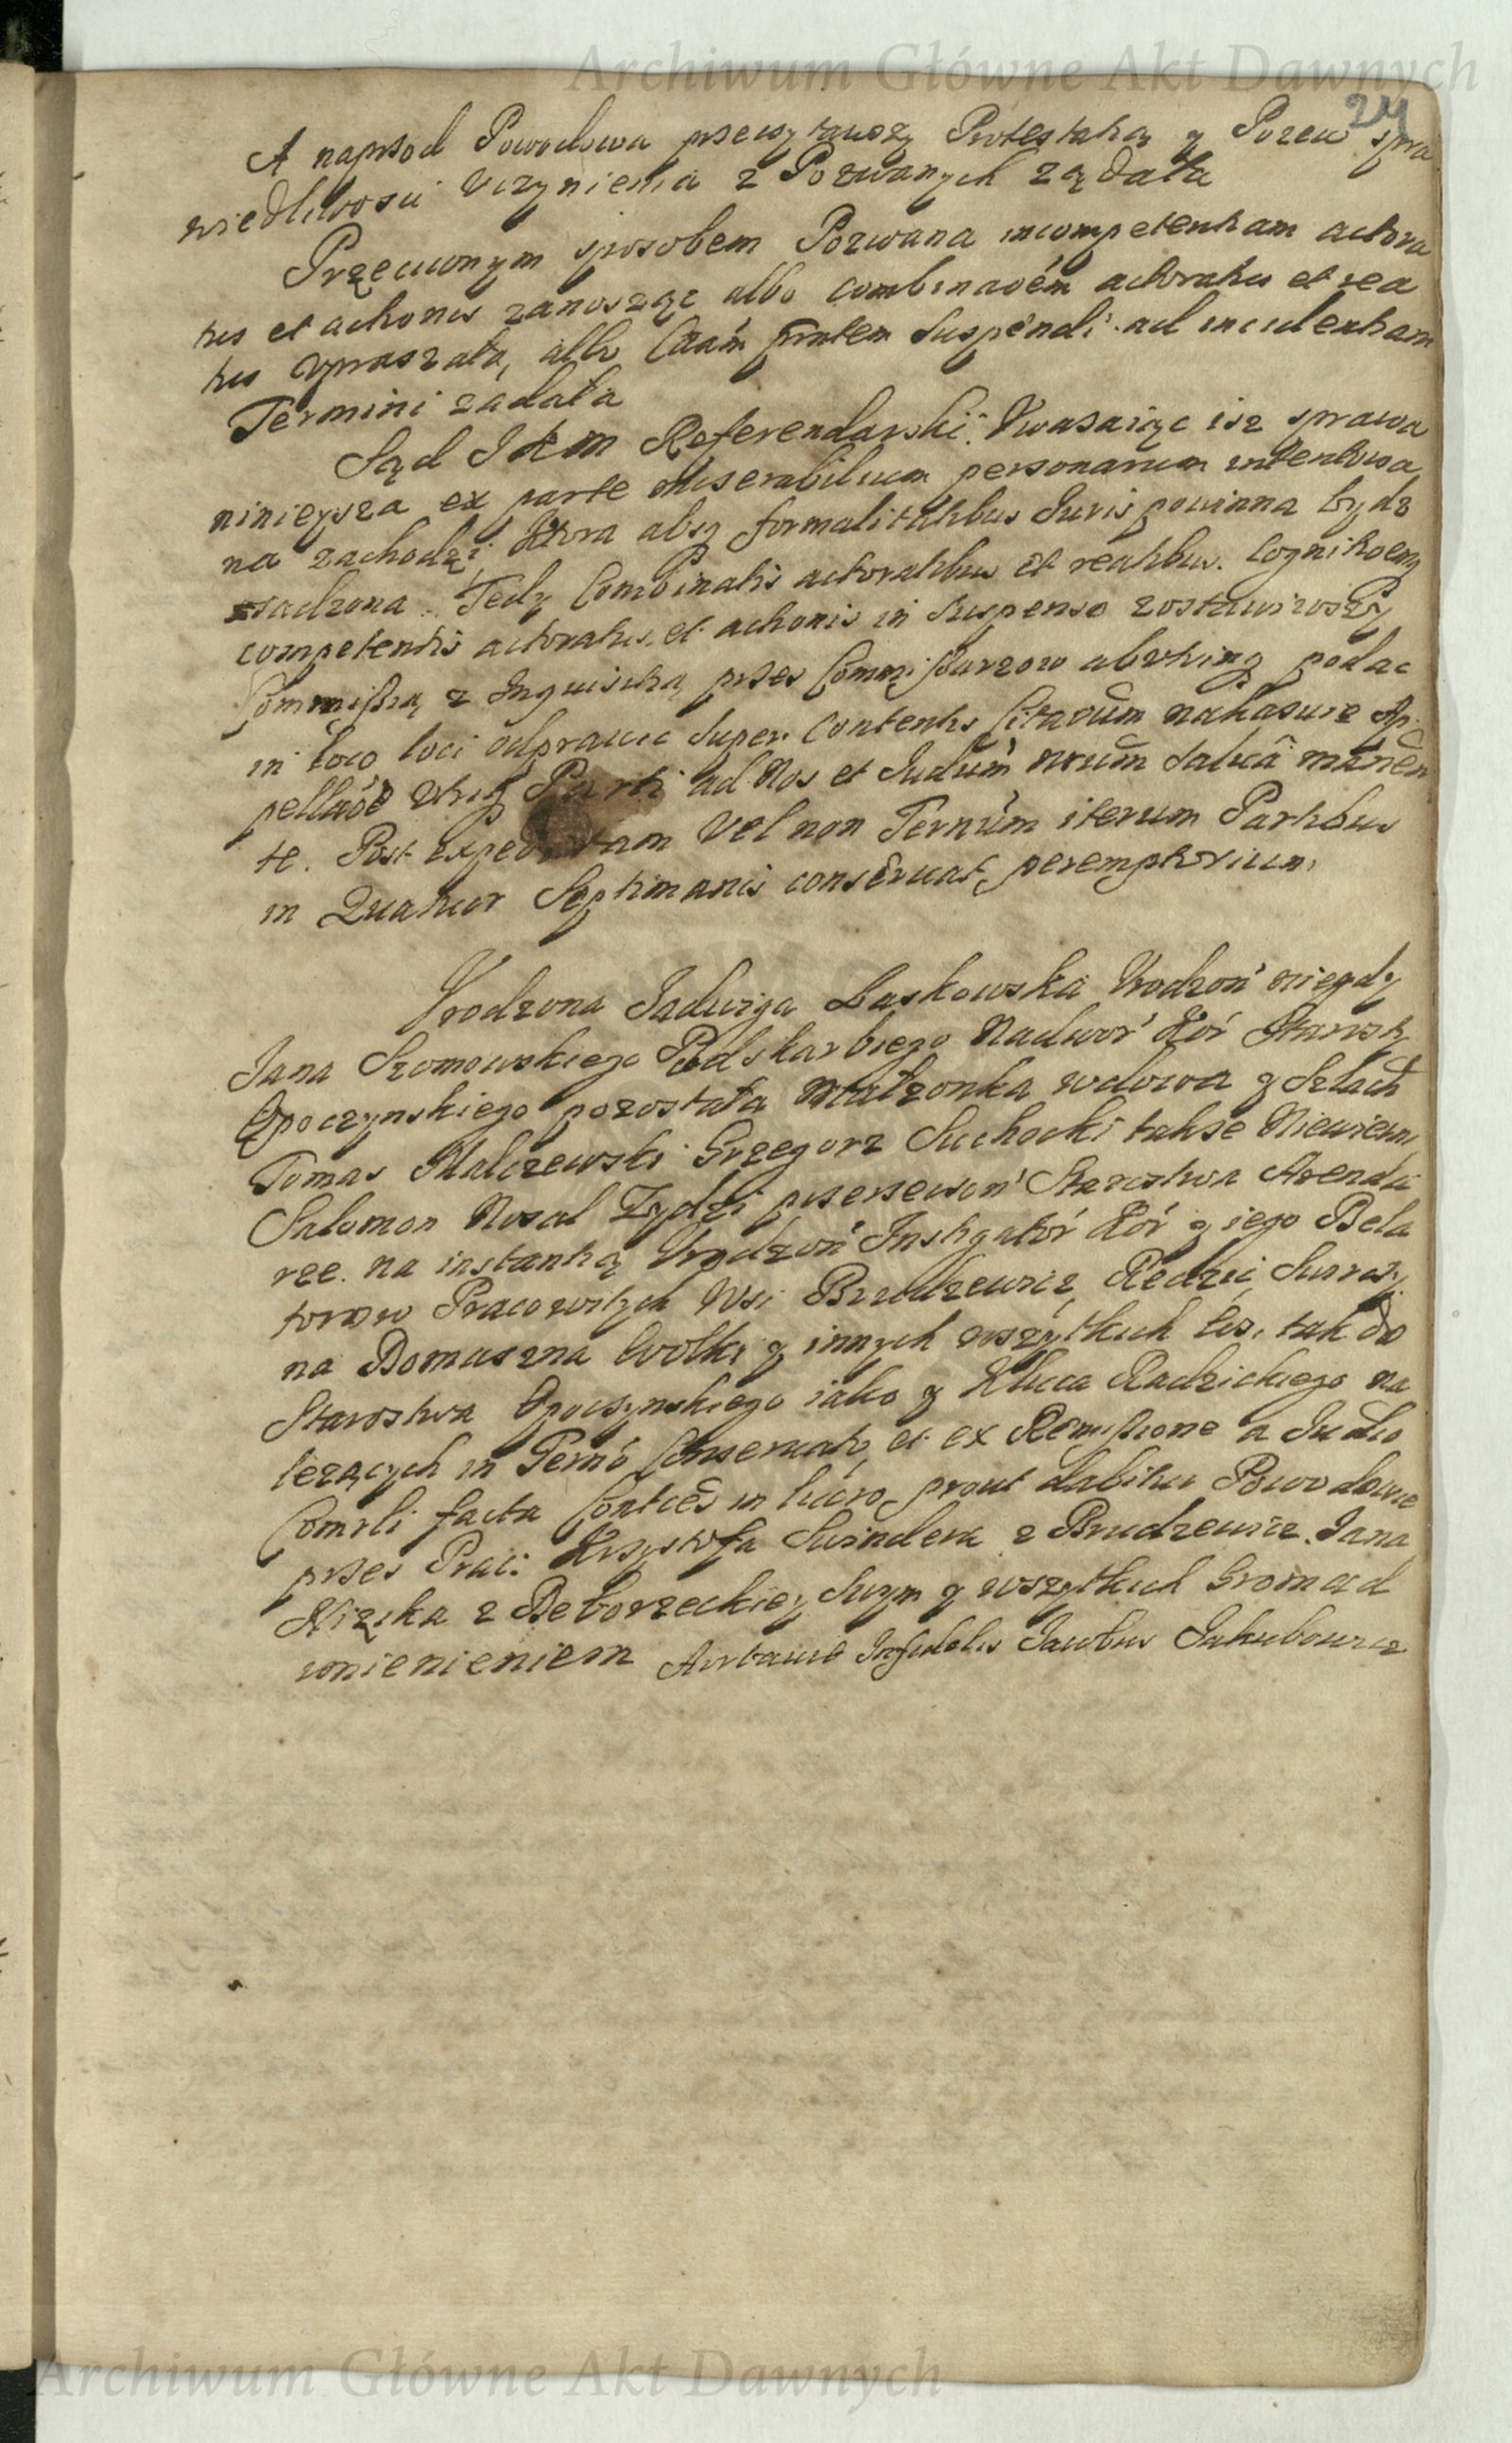 Archiwum Główne Akt Dawnych
24
A naprsod Powodowa przeczytawszy Protestatią y Pozew spra
wiedliwosci vczynienia z Pozwanych ządała
Przeciwnym sposobem Pozwana incompetentiam actora
tus et actionis zanosząc albo combinaoem actoratus et rea
tus vpraszała, albo Caam prntem suspendi ad incidentiam
Termini ządała
Sąd JKM Referendarski. Vwasaiąc isz sprawa
ninieysza ex parte miserabilium personarum intentowa
na zachodzi, ktora absq formalitatibus Juris powinna bydz
sadzona. Tedy Combinatis actoratibus et reatibus. Cognitioem
competentis actoratus. et actionis in suspenso zostawiwszy
Commissią z Inquisitią przes Commissarzow abvtrinq podac
in loco loci odprawic super Contentis Citaoum nakasuie Ap
pellaoe vtriq Parti ad Nos et Judium nrum salua manen
te. Post expeditam vel non Ternum iterum Partibus
in Quatuor Septimanis conseruat peremptorium.
Vrodzona Jadwiga Laskowska Vrodzon niegdy
Jana Szomowskiego Podskarbiego Nadwor Kor Starosty
Opoczynskiego pozostała Małzonka wdowa y Szlach
Tomas Malczewski Grzegorz Suchocki takse Niewierni
Salomon Nosal Zydzi przerseczon Starostwa Arenda
rze. na instantią Vrodzon Instigator Kor y iego Dela
torow Pracowitych Wsi Brudzewicz, Kledzic,
na Domaszna Wolki y innych wszytkich wsi, tak do
Starostwa Opoczynskiego iako y Klucza Radzickiego na
lezących in Terno Conseruato, et ex Remissione a Judio
Comrli facta Contes in lucro, prout habitu Powodowie
przes Prac: Krzysztofa Swindera z Brudzewicz. Jana
Kizika z Deborzeckiey swym y wszytkich Gromad
imienieniem Infidelis Jacobus Jakubowicz
Archiwum Główne Akt Dawnych